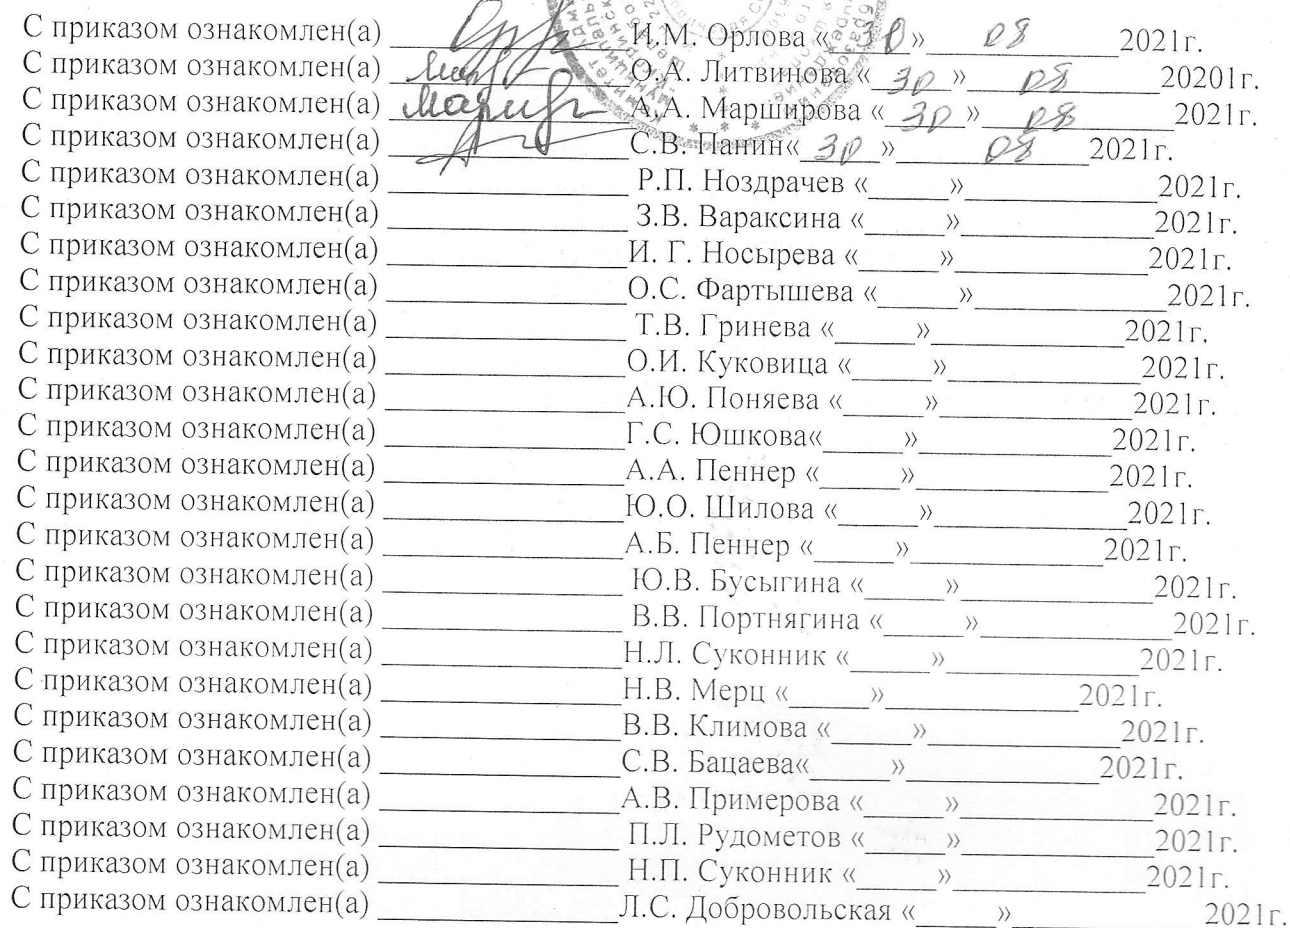 С приказом ознакомлен(а) ____________ И.М. Орлова «30» 08 2021г.
С приказом ознакомлен(а) ____________ О.А. Литвинова «30» 08 20201г.
С приказом ознакомлен(а) ____________ А.А. Марширова «30» 08 2021г.
С приказом ознакомлен(а) ____________ С.В. Панин«30» 08 2021г.
С приказом ознакомлен(а) ____________ Р.П. Ноздрачев «_____»____________2021г.
С приказом ознакомлен(а) ____________ З.В. Вараксина «_____»____________2021г.
С приказом ознакомлен(а) ____________И. Г. Носырева «_____»____________2021г.
С приказом ознакомлен(а) ____________О.С. Фартышева «_____»____________2021г.
С приказом ознакомлен(а) ____________ Т.В. Гринева «_____»____________2021г.
С приказом ознакомлен(а) ____________О.И. Куковица «_____»____________2021г.
С приказом ознакомлен(а) ____________А.Ю. Поняева «_____»____________2021г.
С приказом ознакомлен(а) ____________Г.С. Юшкова«_____»____________2021г.
С приказом ознакомлен(а) ____________А.А. Пеннер «_____»____________2021г.
С приказом ознакомлен(а) ____________Ю.О. Шилова «_____»____________2021г.
С приказом ознакомлен(а) ____________А.Б. Пеннер «_____»____________2021г.
С приказом ознакомлен(а) ____________ Ю.В. Бусыгина «_____»____________2021г.
С приказом ознакомлен(а) ____________ В.В. Портнягина «_____»____________2021г.
С приказом ознакомлен(а) ____________Н.Л. Суконник «_____»____________2021г.
С приказом ознакомлен(а) ____________Н.В. Мерц «_____»____________2021г.
С приказом ознакомлен(а) ____________В.В. Климова «_____»____________2021г.
С приказом ознакомлен(а) ____________С.В. Бацаева«_____»____________2021г.
С приказом ознакомлен(а) ____________А.В. Примерова «_____»____________2021г.
С приказом ознакомлен(а) ____________ П.Л. Рудометов «_____»____________2021г.
С приказом ознакомлен(а) ____________ Н.П. Суконник «_____»____________2021г.
С приказом ознакомлен(а) ____________Л.С. Добровольская «_____»____________2021г.